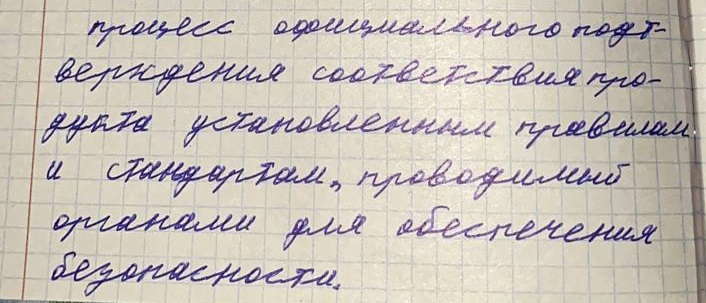 процесс официального подт-
верждения соответствия про-
дукта установленным правилам
и стандартам, проводимый
органами для обеспечения
безопасности.